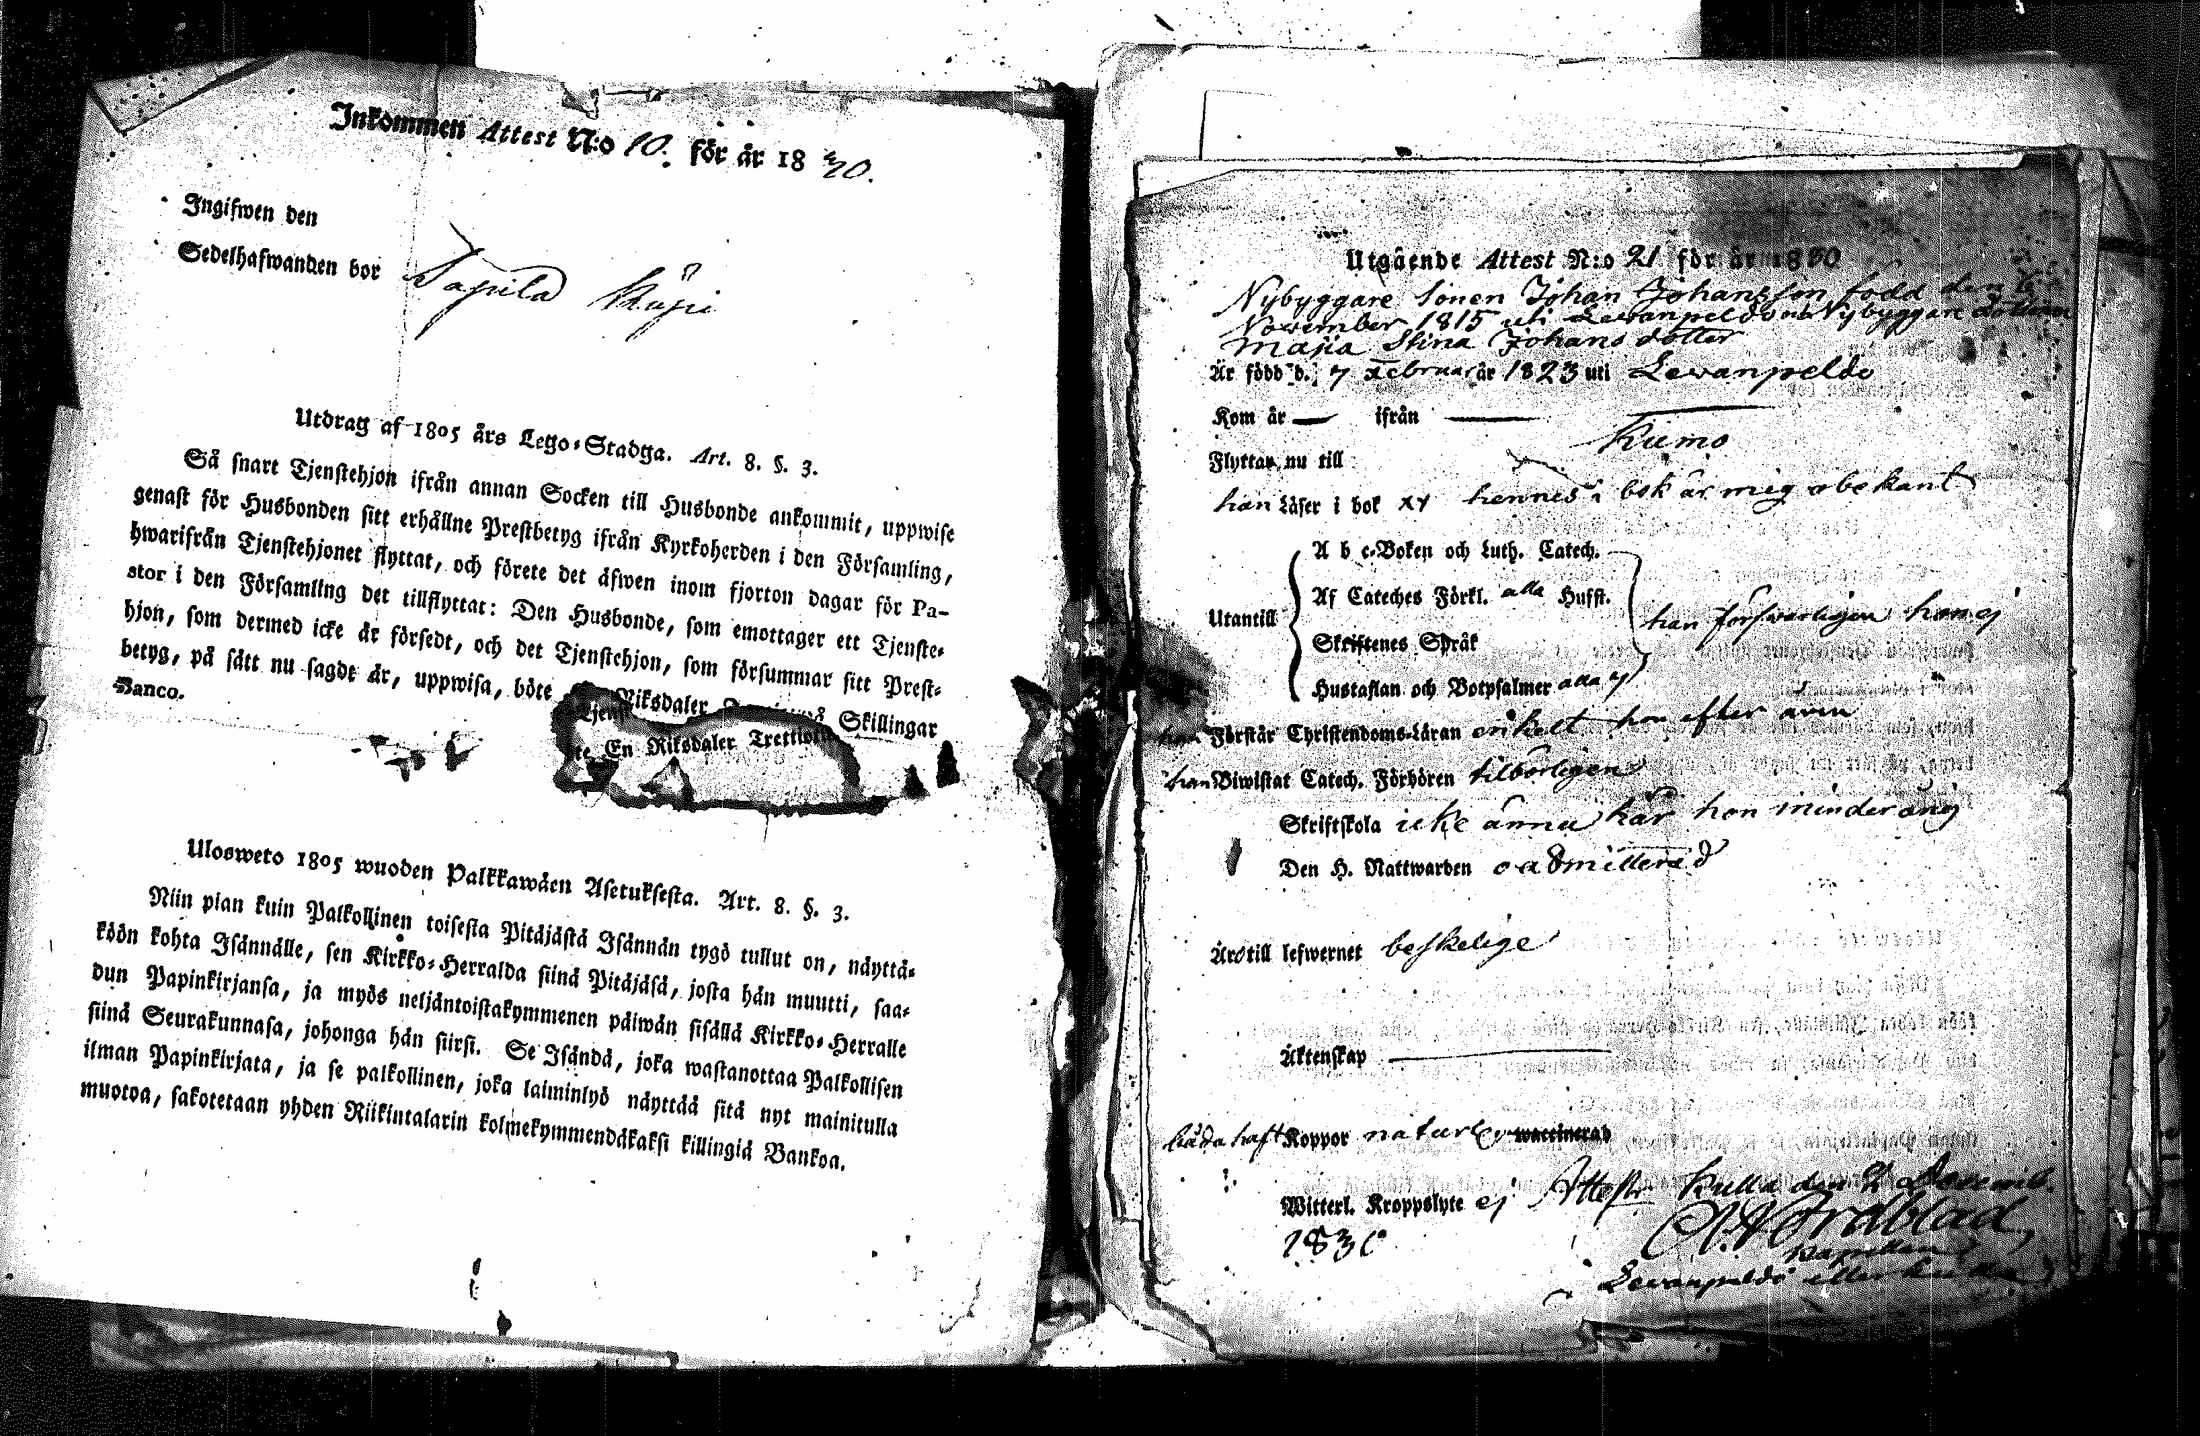 Inkommen Attest N:o 10. för år 1830.
Ingifwen den
Sedelhafwanden bor
Utdrag af 1805 års Lego-Stadga. Art. 8. §. 3.
Så snart Tjenstehjon ifrån annan Socken till Husbonde ankommit, uppwise
genast för Husbonden sitt erhållne Prestbetyg ifrån Kyrkoherden i den Församling,
hwarifrån Tjenstehjonet flyttat, och förete det äfwen inom fjorton dagar för Pa-
stor i den Församling det tillflyttat: Den Husbonde, som emottager ett Tjenste-
hjon, som dermed icke är försedt, och det Tjenstehjon, som försummar sitt Prest-
betyg, på sätt nu sagdt är, uppwisa, böte Riksdaler Skillingar
Banco.
En Riksdaler
Ulosweto 1805 wuoden Palkkawäen Asetuksesta. Art. 8. §. 3.
Niin pian kuin Palkollinen toisesta Pitäjästä Isännän tygö tullut on, näyttä-
köön kohta Isännälle, sen Kirkko-Herralda siinä Pitäjäsä, josta hän muutti, saa-
dun Papinkirjansa, ja myös neljäntoistakymmenen päiwän sisällä Kirkko-Herralle
siinä Seurakunnasa, johonga hän siirsi. Se Isändä, joka wastanottaa Palkollisen
ilman Papinkirjata, ja se palkollinen, joka laiminlyö näyttää sitä nyt mainitulla
muotoa, sakotetaan yhden Riikintalarin kolmekymmendäkaksi killingiä Bankoa.
Utgående Attest N:o 21 för år 1830
Nybyggare Sonen Johan Johansson född den
November 1815 uti Levanpeldo Nybyggare dottren
Majia Stina Johans dotter
Är född d. 7 Februar år 1823 uti Levanpeldo
Kom år — ifrån —
Kumo
Flyttar nu till
han Läser i bok xy hennes i bok är mig obekant
A b c-Boken och Luth. Catech.
Af Cateches Förkl. alla Husst.
Utantill han försvarligen hon ej
Skriftenes Språk
Hustaflan och Botpsalmer alla
han Förstår Christendoms-Läran enkelt hon efter
han Biwistat Catech. Förhören tilbörligen
Skriftskola icke ännu här hon minderårig
Den H. Nattwarden oadmitterad
Äro till lefwernet beskelige
Äktenskap —
båda haft Koppor naturl. waccinerad
Witterl. Kroppslyte ej Attestr Kulla den 2 Decemb.
1830 Nordblad
Kapellan
Levanpeldo eller Kulla